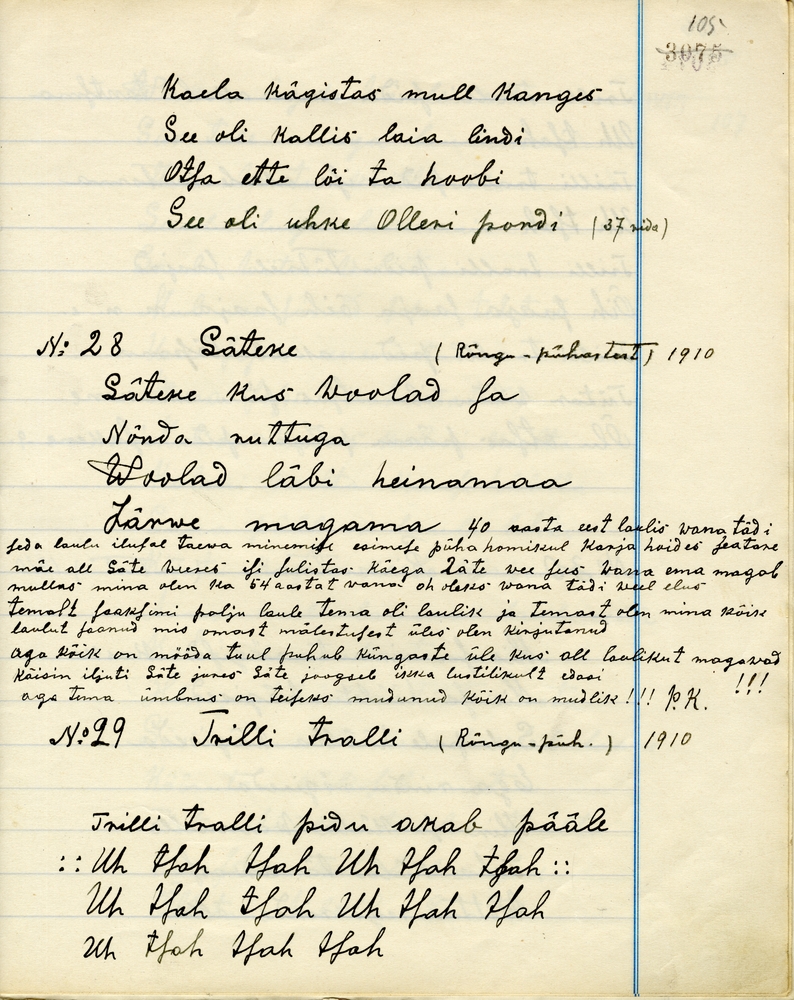 105
3075
Kaela kägistas mull kanges
See oli kallis laia lindi
Otsa ette löi ta hoobi
See oli uhke Olleri pondi (37 rida)
No: 28 Säteke (Rõngu-pühastest) 1910
Säteke kus woolad sa
Nõnda ruttuga
Woolad läbi heinamaa
Järwe magama 40 aasta eest laulis wana tädi
seda laulu ilusal taewa minemise esimese püha homikul Karja hoides seatare
mäe all Säte weeres isi sulistas käega Säte wee sees wana ema magab
mullas mina olen ka 54 aastat wana oh oleks wana tädi weel elus
temalt saaksimi palju laule tema oli laulik ja temast olen mina kõik
laulut saanud mis omast mälestusest üles olen kirjutanud
aga kõik on mööda tuul puhub küngaste üle kus all laulikut magawad
käisin iljuti Säte jures Säte joogseb ikka lustilikult edasi !!!
aga tema ümbrus on teiseks mudunud kõik on mudlik !!! P.K.
No: 29 Trilli tralli (Rõngu-püh.) 1910
Trilli tralli pidu akab pääle
:: Uh tsah tsah Uh tsah tsah ::
Uh tsah tsah Uh tsah tsah
Uh tsah tsah tsah